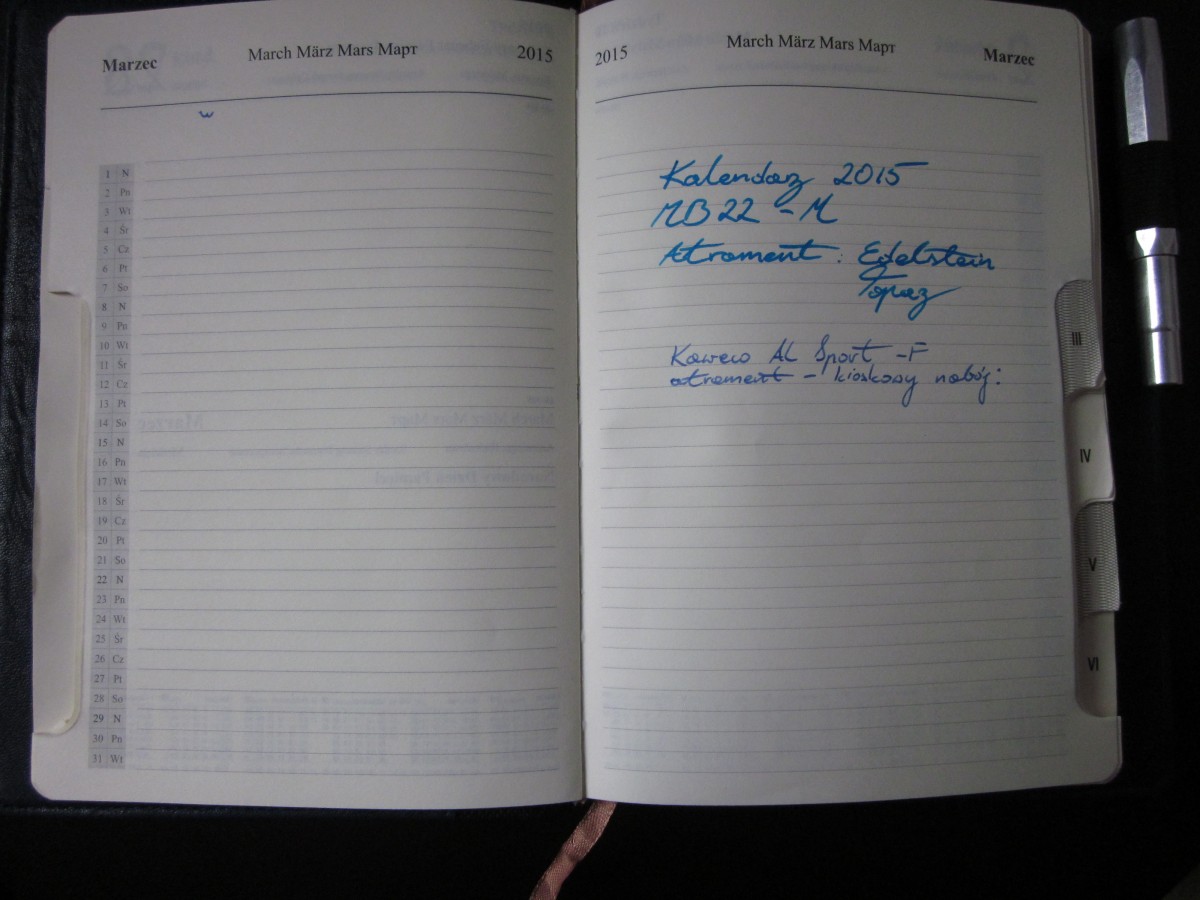 Marzec March März Mars Март 2015
w
1 N
2 Pn
3 Wt
4 Śr
5 Cz
6 Pt
7 So
8 N
9 Pn
10 Wt
11 Śr
12 Cz
13 Pt
14 So
15 N
16 Pn
17 Wt
18 Śr
19 Cz
20 Pt
21 So
22 N
23 Pn
24 Wt
25 Śr
26 Cz
27 Pt
28 So
29 N
30 Pn
31 Wt
2015 March März Mars Март Marzec
Kalendarz 2015
MB 22 - M
Atrament : Edelstein
Topaz
Kaweco AL Sport - F
atrament - kioskowy nabój:
III
IV
V
VI